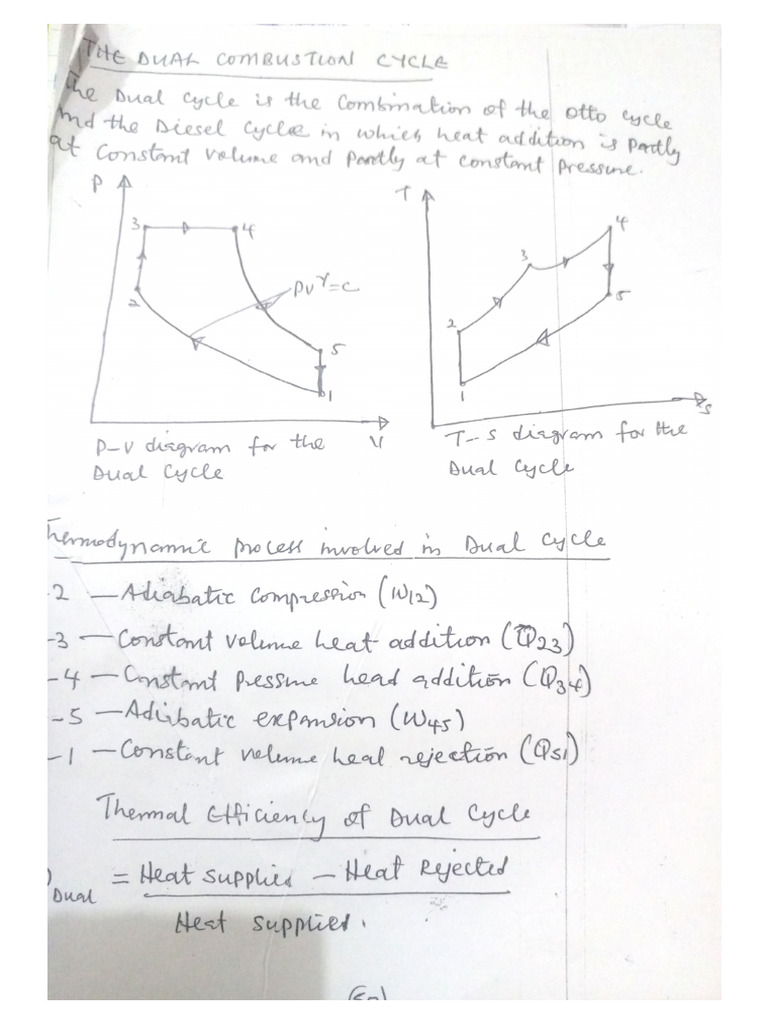 THE DUAL COMBUSTION CYCLE
The Dual Cycle is the Combination of the Otto cycle
and the Diesel Cycle in which heat addition is Partly
at Constant Volume and Partly at constant Pressure.
P
T
3
4
4
3
2
PVᵞ=C
5
5
2
1
1
V
S
P-V diagram for the
Dual Cycle
T-S diagram for the
Dual Cycle
Thermodynamic process involved in Dual Cycle
-2 — Adiabatic Compression (W12)
-3 — Constant volume heat addition (Q23)
-4 — Constant Pressure head addition (Q34)
-5 — Adiabatic expansion (W45)
-1 — Constant volume heat rejection (Q51)
Thermal Efficiency of Dual Cycle
Dual = Heat supplied - Heat Rejected
Heat supplied.